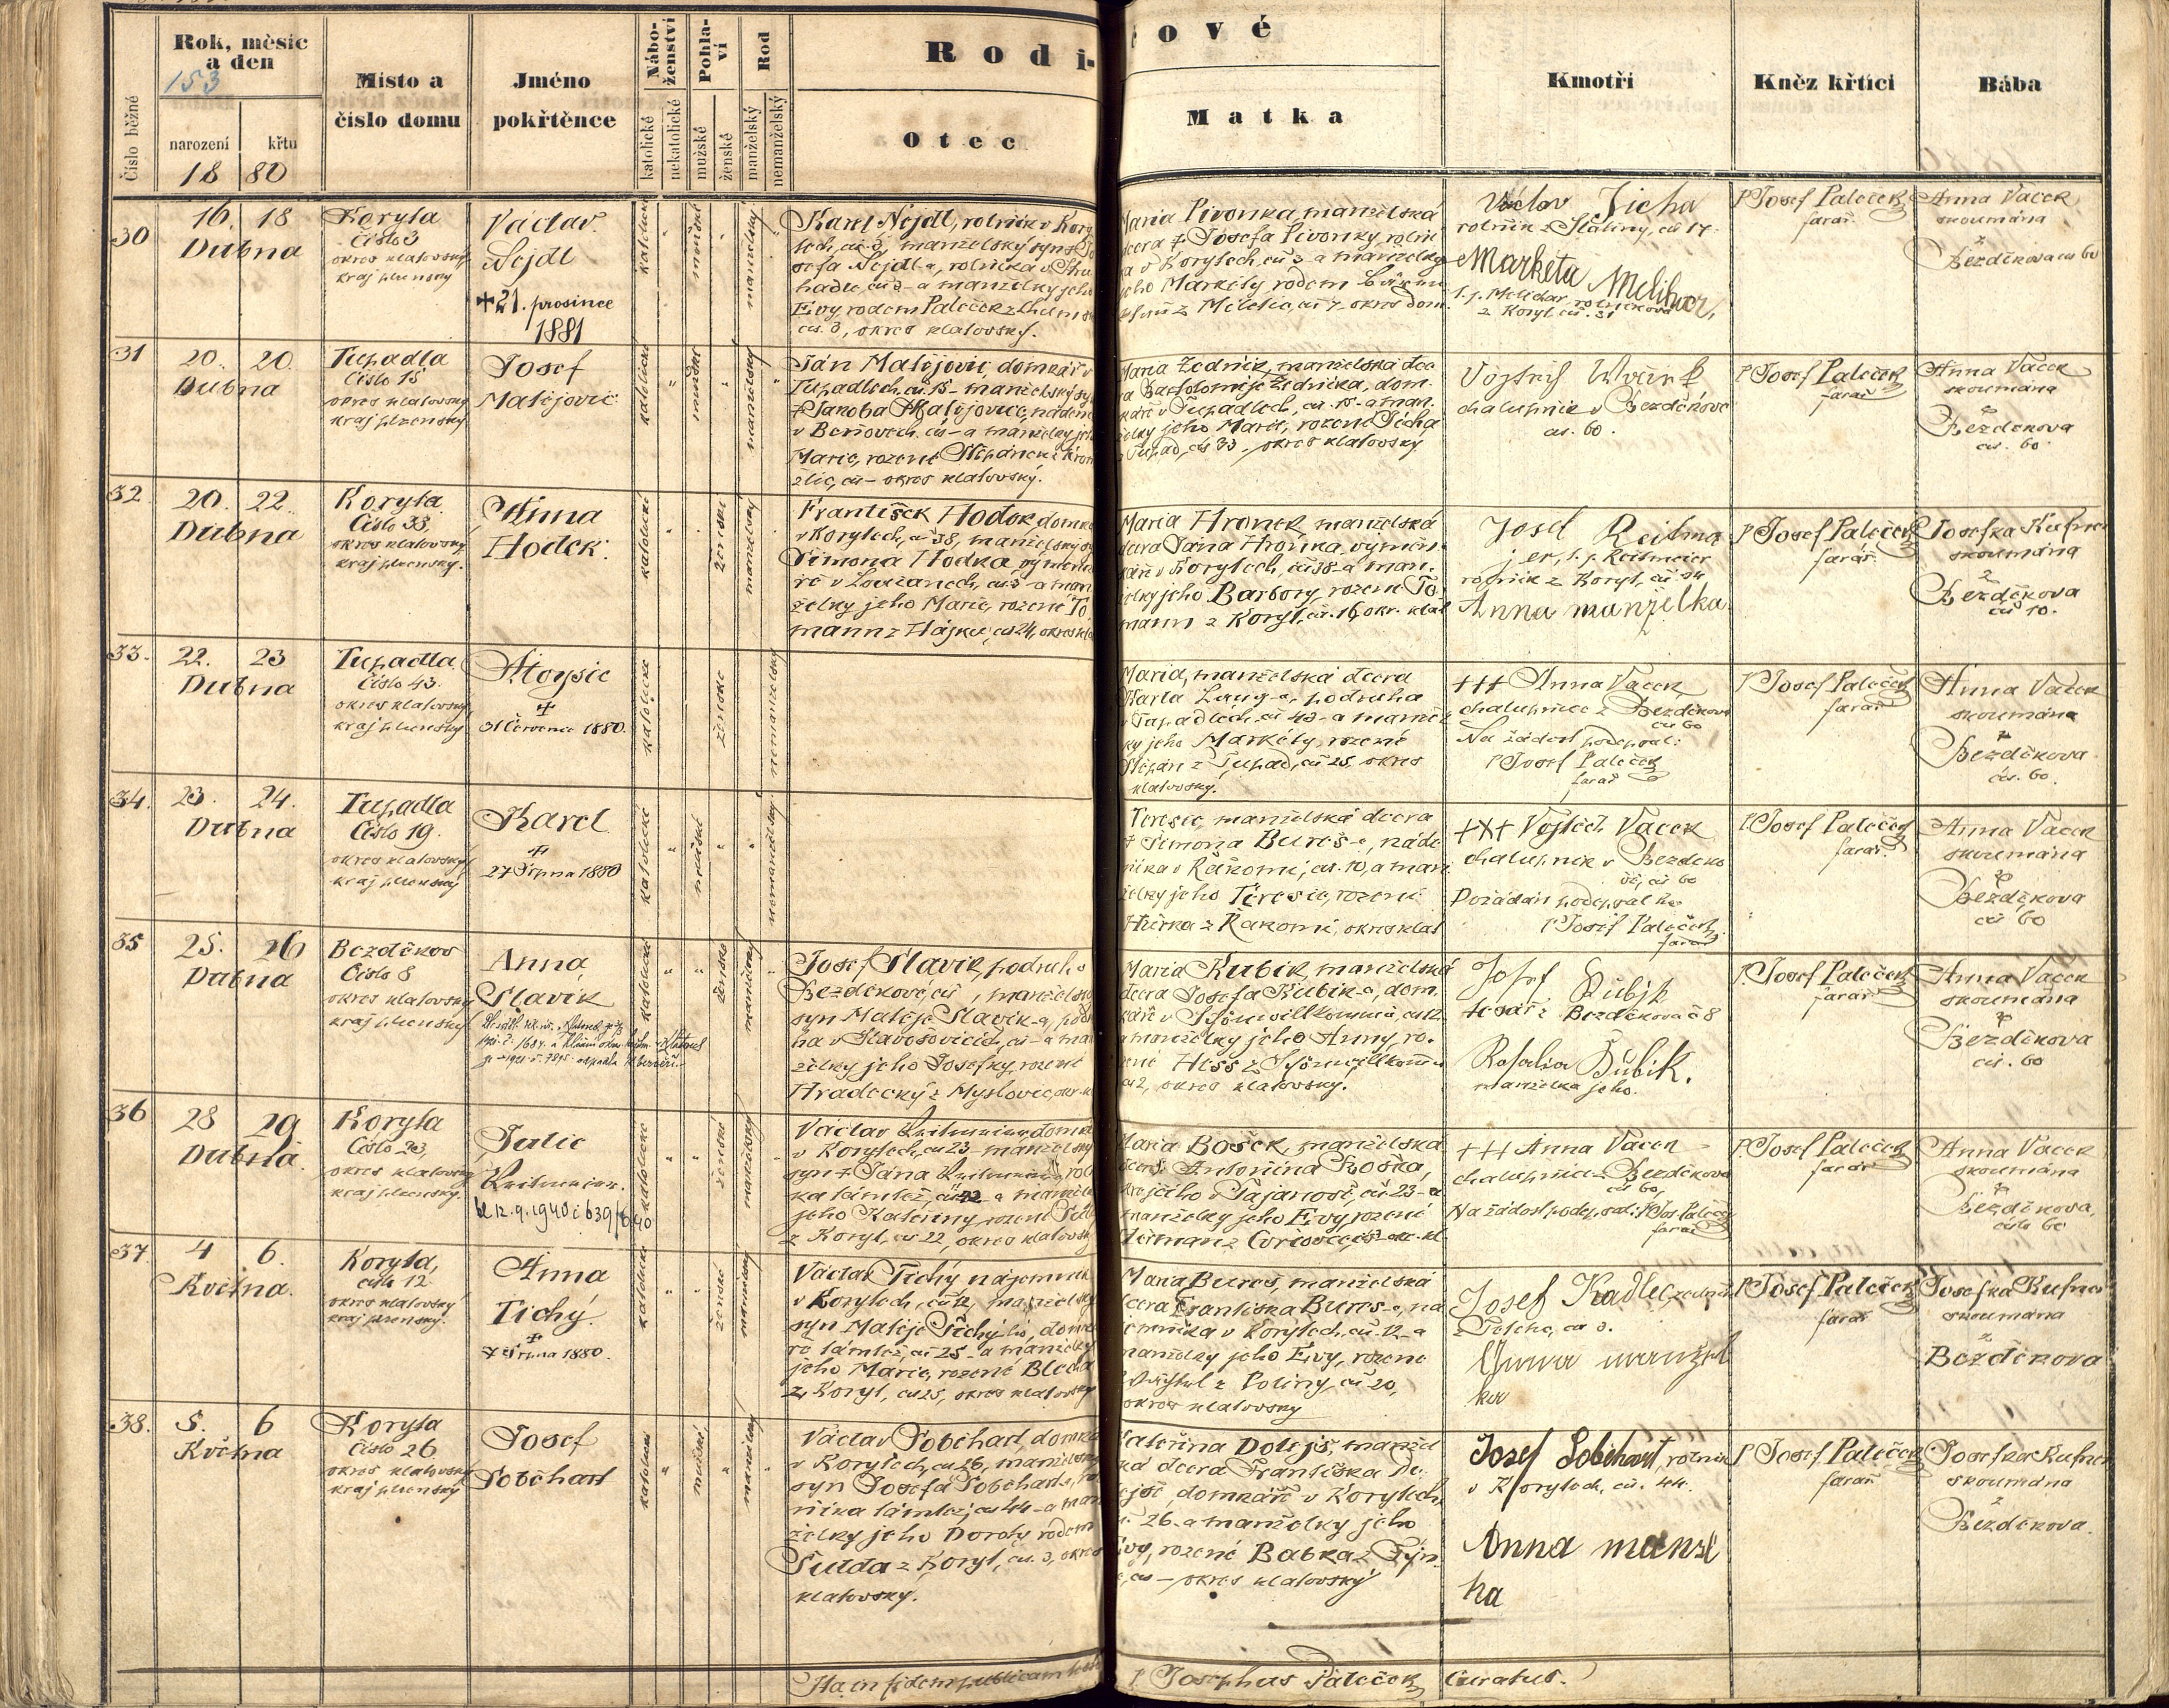 Rok, měsíc
a den
153
Číslo běžné
narození
křtu
18 80
Místo a
číslo domu
Jméno
pokřtěnce
Nábo-
ženství
katolické
nekatolické
Pohla-
ví
mužské
ženské
Rod
manželský
nemanželský
Rodi-
čové
Otec
Matka
Kmotři
Kněz křtící
Bába
30
16. 18
Dubna
Koryta
Číslo 3
okres klatovský
kraj plzenský
Václav
Nejdl
+21. prosince
1881
Karel Nejdl, rolník v Kory
tech, čís 3, manželský syn Jo
sefa Nejdl-a, rolníka v
a manželky jeho
Evy rodem Paleček z
čís. 3, okres klatovský.
Maria Pivonka, manželská
dcera † Josefa Pivonky, rolní
ka v Korytech, čís 3 a manželky
jeho Markéty rodem
z Miletic, čís 7, okres Dom.
Václav Ticha
rolník z Slatiny, čís 17.
Markéta Melihar,
t. j. Melichar, rolníkova
z Koryt, čís. 31
P Josef Paleček
farář.
Anna Vacek
zkoumána
z
Bezděkova čís 60
31
20. 20.
Dubna
Tupadla
Číslo 15
okres klatovský
kraj plzenský
Josef
Matějovic
Jan Matějovic, domkář v
Tupadlech, čís. 15 - manželský sy
† Jakoba Matějovic, nádení
v Beňovech, čís - a manželky jeho
Marie, rozené Štěpánek z
čís - okres klatovský.
Maria Žedník, manželská dce
ra Bartoloměje Žedníka, dom.
káře v Tupadlech, čís. 15 - a man.
želky jeho Marie, rozené Tichá
z Tupad, čís 33 - okres klatovský
Vojtěch
chalupník v Bezděkově
čís. 60.
P Josef Paleček
farář
Anna Vacek
zkoumána
z
Bezděkova
čís. 60
32.
20. 22.
Dubna
Koryta
Číslo 38.
okres klatovský
kraj plzenský.
Anna
Hodek.
František Hodek, domká
v Korytech, čís 38, manželský sy
Šimona Hodka, výměnká
ře v Loužanech, čís 3 - a man
želky jeho Marie, rozené To
mann z Hájku, čís 24, okres kla
Maria Hronek, manželská
dcera Jána Hronka, výměn.
káře v Korytech, čís 38 - a man.
želky jeho Barbory, rozené To.
mann z Koryt, čís. 16, okr. klat
Josef Reitma
jer, t. j. Reitmeier
rolník z Koryt, čís 24
Anna manželka
P Josef Paleček
farář.
Josefka Kufner
zkoumána
z
Bezděkova
čís 10.
33.
22. 23
Dubna
Tupadla
Číslo 43.
okres klatovský
kraj plzenský
Aloysie
+
31 Července 1880.
Maria, manželská dcera
Karla Lang-a, podruha
v Tupadlech, čís 43 - a manžel
ky jeho Markéty, rozené
Štěpán z Tupad, čís 25, okres
klatovský.
+++ Anna Vacek
chalupnice z Bezděkova
čís 60
Na žádost podepsal:
P Josef Paleček
farář
P Josef Paleček
farář
Anna Vacek
zkoumána
z
Bezděkova.
čís. 60.
34.
23. 24.
Dubna
Tupadla
Číslo 19.
okres klatovský
kraj plzenský
Karel
+
27 Srpna 1880
Teresie, manželská dcera
† Šimona Bureš-e, náde
níka v Řakomi, čís. 10, a man
želky jeho Teresie, rozené
Hůrka z Řakomi, okres klat
+++ Vojtěch Vacek
chalupník v Bezděko
vě, čís 60
Požádán podepsal ho
P Josef Paleček,
farář
P Josef Paleček
farář.
Anna Vacek
zkoumána
z
Bezděkova
čís 60
35
25. 26
Dubna
Bezděkov
Číslo 8
okres klatovský
kraj plzenský
Anna
Slavík
Josef Slavík, podruh v
Bezděkově, čís , manželský
syn Matěje Slavík-a, podru
ha v Slavošovicích, čís - a man
želky jeho Josefky, rozené
Hradecký z Myslovic, okr. kl
Maria Kubík, manželská
dcera Josefa Kubík-a, dom.
káře v Schönwillkommu, čís 12
a manželky jeho Anny, ro.
zené Hess z Schönwillkomm-u
čís 2, okres klatovský.
Josef Kubík
tesař z Bezděkova č 8
Rosalia Kubik.
manželka jeho.
P. Josef Paleček
farář
Anna Vacek
zkoumána
z
Bezděkova
čís. 60
36
28 29
Dubna.
Koryta
Číslo 23,
okres klatovský
kraj plzenský.
Julie
Reitmeier.
12. 9. 1940 č 639/40
Václav Reitmeier, domká
v Korytech, čís 23 - manželský
syn † Jana Reitmeier, rol
ka tamtéž, čís - a manžel
jeho Kateřiny, rozené
z Koryt, čís 22, okres klatovský
Maria Bošek, manželská
dcera Antonína Boška,
krejčího v Tajanově, čís 23 - a
manželky jeho Evy, rozené
Heřman z
+++ Anna Vacek
chalupnice z Bezděkova
čís 60,
Na žádost podepsal: P Jos. Paleček
farář
P. Josef Paleček
farář
Anna Vacek
zkoumána
z
Bezděkova,
číslo 60
37.
4 6.
Května.
Koryta,
číslo 12
okres klatovský
kraj plzenský.
Anna
Tichý.
+
7 Srpna 1880.
Václav Tichý, nájemník
v Korytech, čís 12, manželský
syn Matěje Tichý-ho, domká
ře tamtéž, čís 25 - a manželky
jeho Marie, rozené Blecha
z Koryt, čís 25, okres klatovský
Maria Bureš, manželská
dcera Františka Bureš-e, ná
jemníka v Korytech, čís. 12 - a
manželky jeho Evy, rozené
z Poliny, čís 20,
okres klatovský
Josef Kadlec,
čís 3.
Anna manžel
ka
P Josef Paleček
farář
Josefka Kufner
zkoumána
z
Bezděkova
38.
5. 6
Května
Koryta
Číslo 26
okres klatovský
kraj plzenský
Josef
Sobehart
Václav Sobehart, domkář
v Korytech, čís 26, manželský
syn Josefa Sobehart-a, rol
níka tamtéž, čís 44 - a man
želky jeho Doroty rodem
Šulda z Koryt, čís. 3, okres
klatovský.
Kateřina Dolejš, manžel
ská dcera Františka Do-
lejše, domkáře v Korytech,
č. 26 - a manželky jeho
Evy, rozené Babka z Týn
čís - okres klatovský
Josef Sobehart, rolník
v Korytech, čís. 44.
Anna manžel
ka
P Josef Paleček
farář
Josefka Kufner
zkoumána
z
Bezděkova.
Ita in fidem publicam
P Josephus Paleček, Curatus.